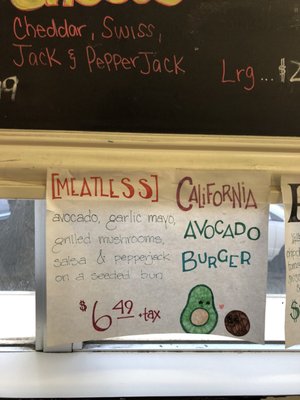 Cheddar, Swiss,
Jack & Pepper Jack
Lrg...$2
9
[MEATLESS]
avocado, garlic mayo,
grilled mushrooms,
salsa & pepperjack
on a seeded bun
$6.49 +tax
CALIFORNIA
AVOCADO
BURGER